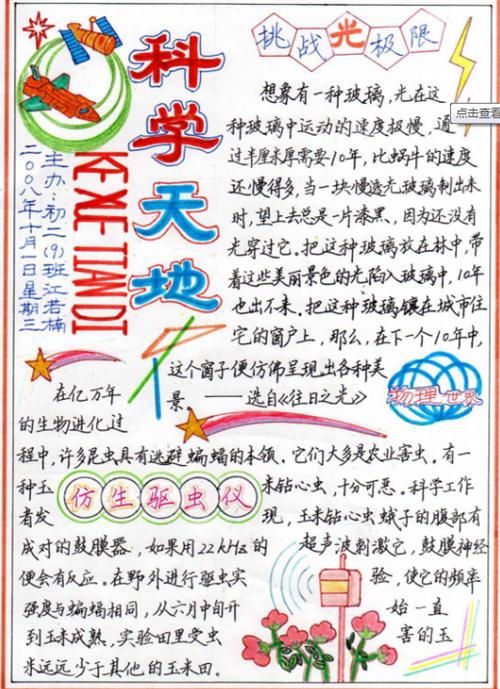 科学天地
KE XUE TIAN DI
主办:初二(9)班江若楠
二〇〇八年十月一日星期三
挑战光极限
点击查看
想象有一种玻璃,光在这
种玻璃中运动的速度极慢,通
过半厘米厚需要10年,比蜗牛的速度
还慢得多,当一块慢透光玻璃制出来
时,望上去总是一片漆黑,因为还没有
光穿过它。把这种玻璃放在林中,带
着这些美丽景色的光陷入玻璃中,10年
也出不来。把这种玻璃镶在城市住
宅的窗户上,那么,在下一个10年中,
这个窗子便仿佛呈现出各种美
景 ——选自《往日之光》
物理世界
仿生驱虫仪
在亿万年
的生物进化过
程中,许多昆虫具有逃避蝙蝠的本领。它们大多是农业害虫,有一
种玉 米钻心虫,十分可恶。科学工作
者发 现,玉米钻心虫蛾子的腹部有
成对的鼓膜器,如果用22kHz的 超声波刺激它,鼓膜神经
便会有反应。在野外进行驱虫实 验,使它的频率
强度与蝙蝠相同,从六月中旬开 始一直
到玉米成熟,实验田里受虫 害的玉
米远远少于其他的玉米田。